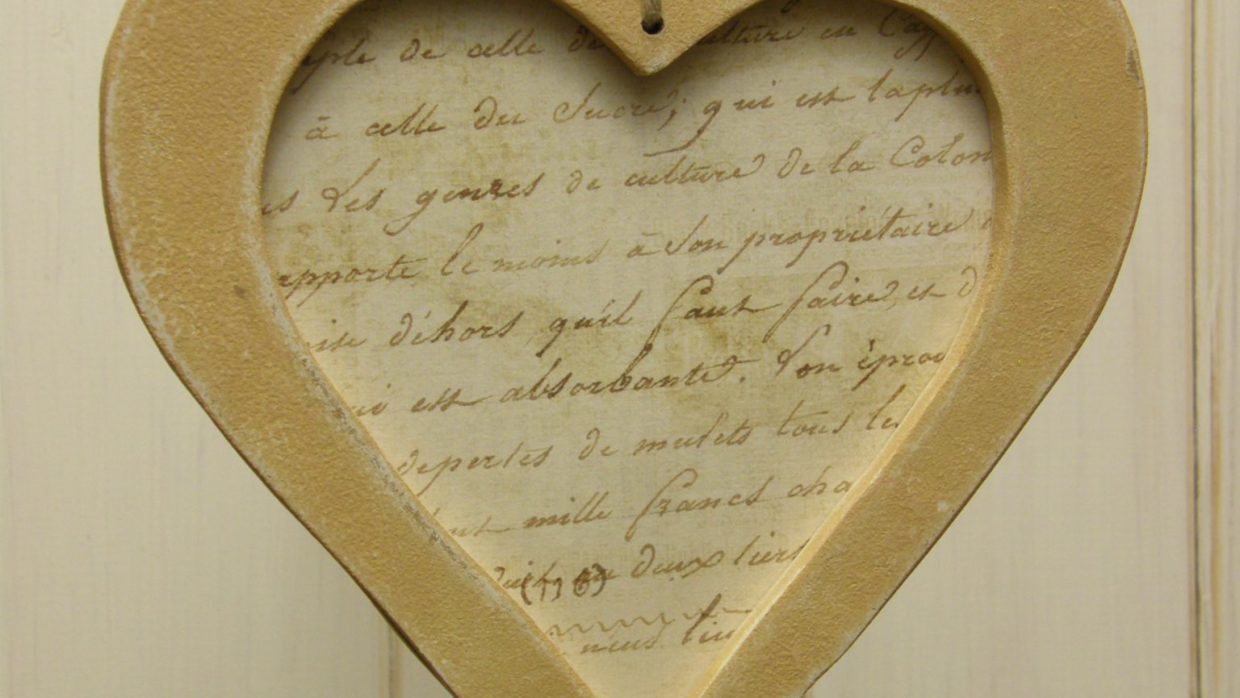 de celle de culture en
à celle du Sucre; qui est la plu
des genres de culture de la Colon
rapporte le moins à son propriétaire
déhors qu'il faut faire, est d
qui est absorbante. L'on épro
de pertes de mulets tous les
mille francs cha
deux tiers
(116)
nous